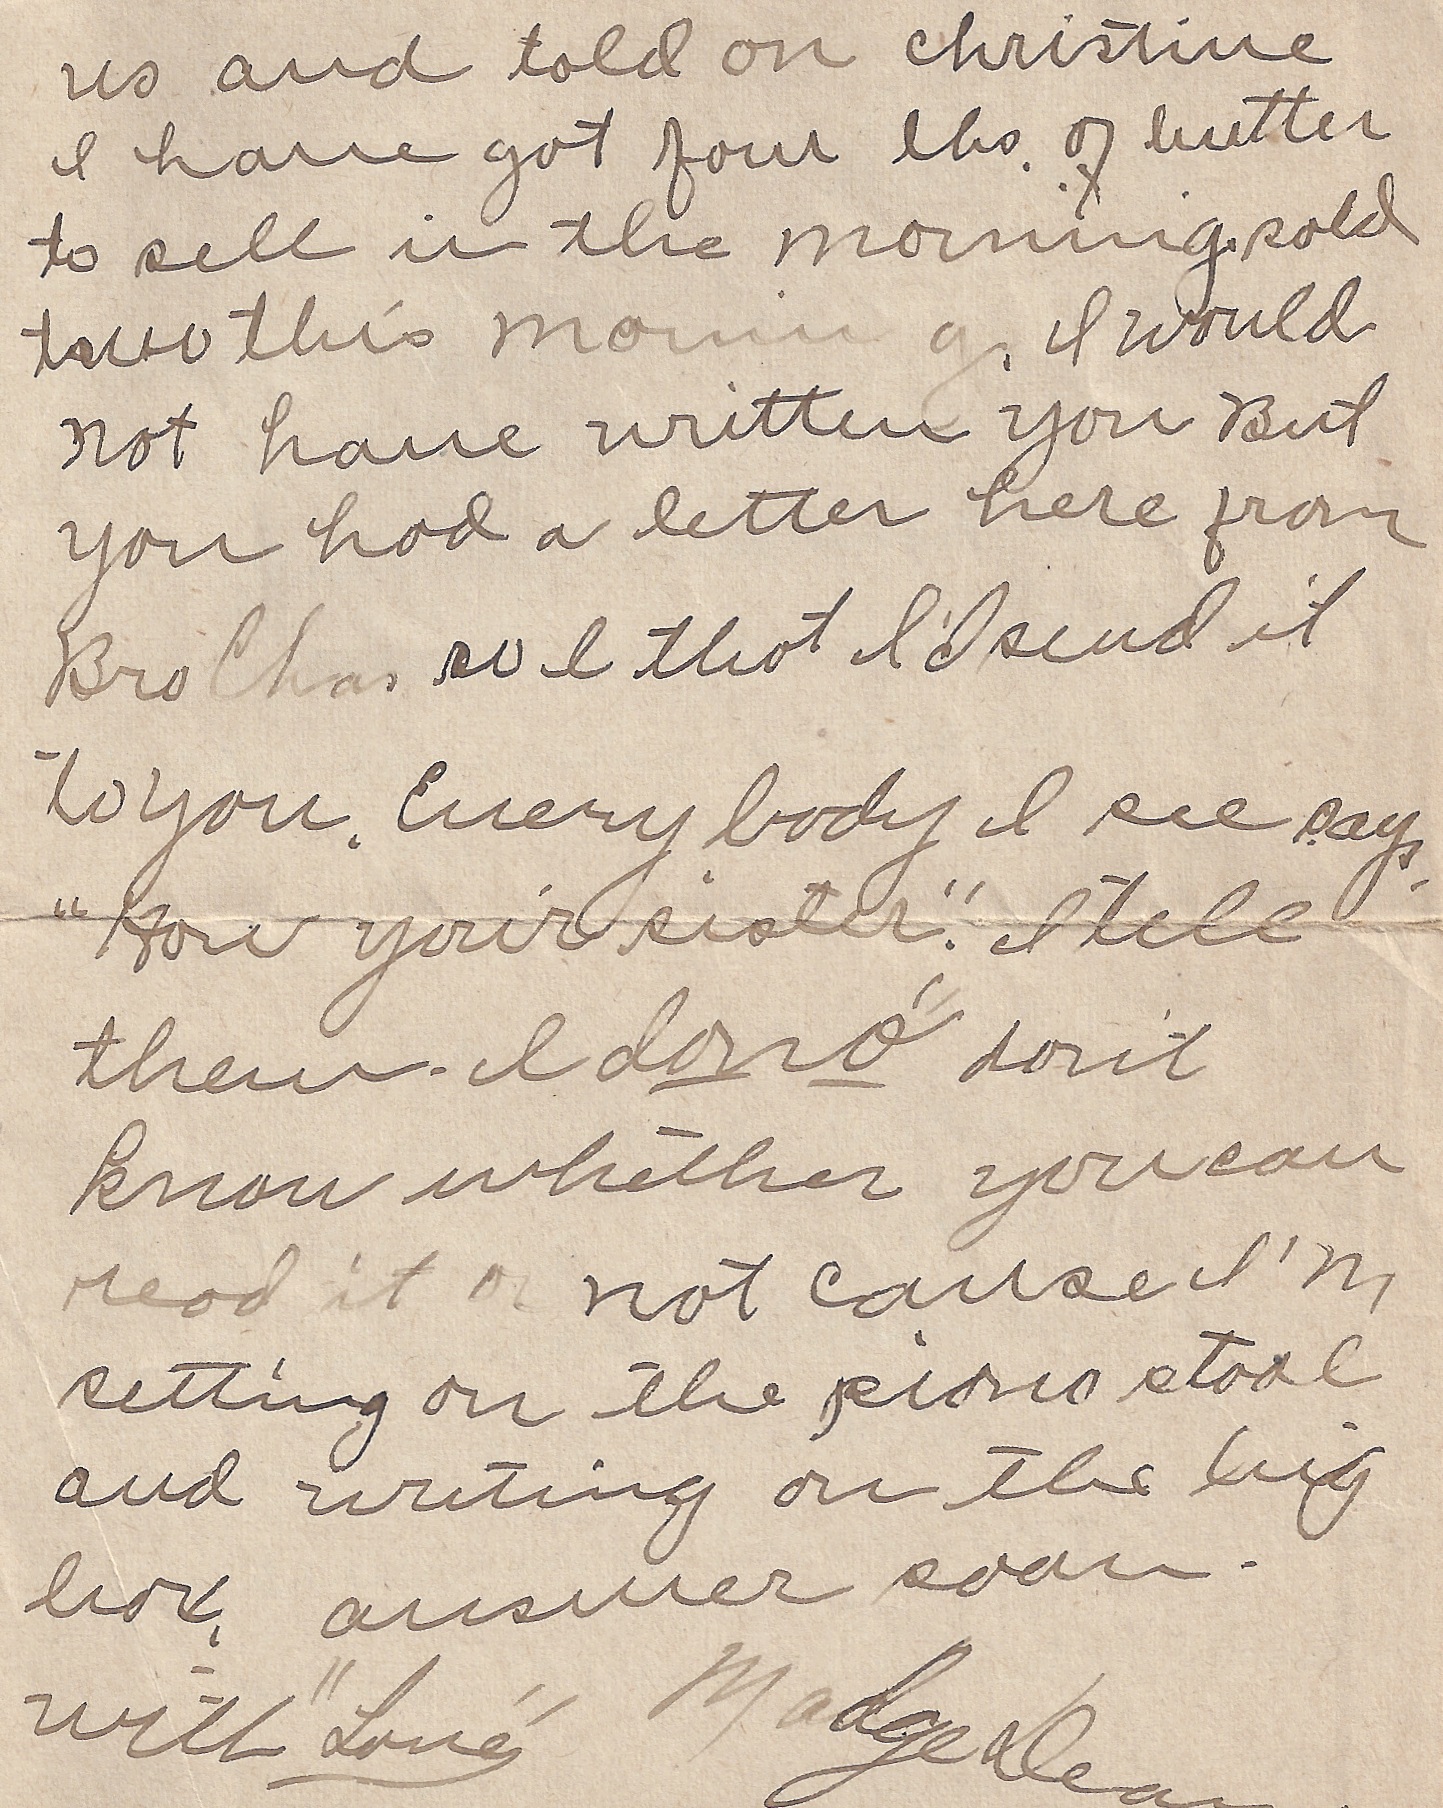 us and told on christine
I have got four lbs. of butter
to sell in the morning. sold
two this morning, I would
not have written you But
you had a letter here from
Bro Chas so I thot I'd send it
to you. Every body I see says.
"How your's sister". I tell
them. I dono" don't
know whether you can
read it or not cause I'm
setting on the piano stool
and writing on the big
box, answer soan.
with "Love" Madge Dean